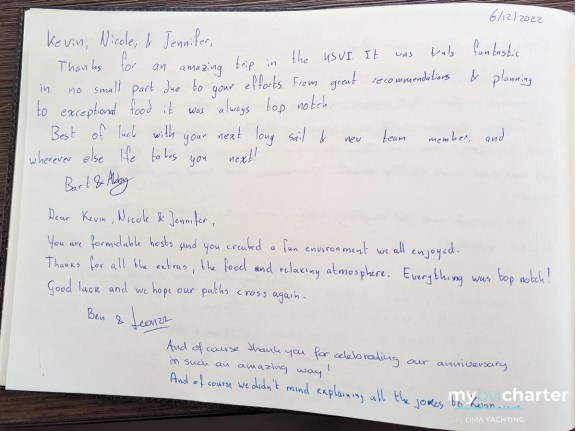 6/12/2022
Kevin, Nicole, & Jennifer,
Thanks for an amazing trip in the USVI. It was truly fantastic
in no small part due to your efforts. From great recommendations & planning
to exceptional food it was always top notch.
Best of luck with your next long sail & new team member, and
wherever else life takes you next!
Bart & Abby
Dear Kevin, Nicole & Jennifer,
You are formidable hosts and you created a fun environment we all enjoyed.
Thanks for all the extras, the food and relaxing atmosphere. Everything was top notch!
Good luck and we hope our paths cross again.
Ben &
And of course thank you for celebrating our anniversary
in such an amazing way!
And of course we didn't mind explaining all the jokes to Kevin
my charter
DMA YACHTING